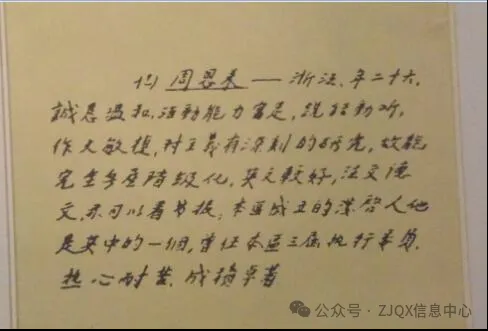 (1) 周恩来——浙江、年二十六,
誠恳温和,活動能力富足,説話動听,
作文敏捷,对主義有深刻的研究,故能
完全无產階級化,英文較好,法文德
文,亦可以看书报,本區成立的発啓人他
是其中的一個,曾任本區三屆执行委員,
热心耐苦,成積卓著
公众号 · ZJQX信息中心